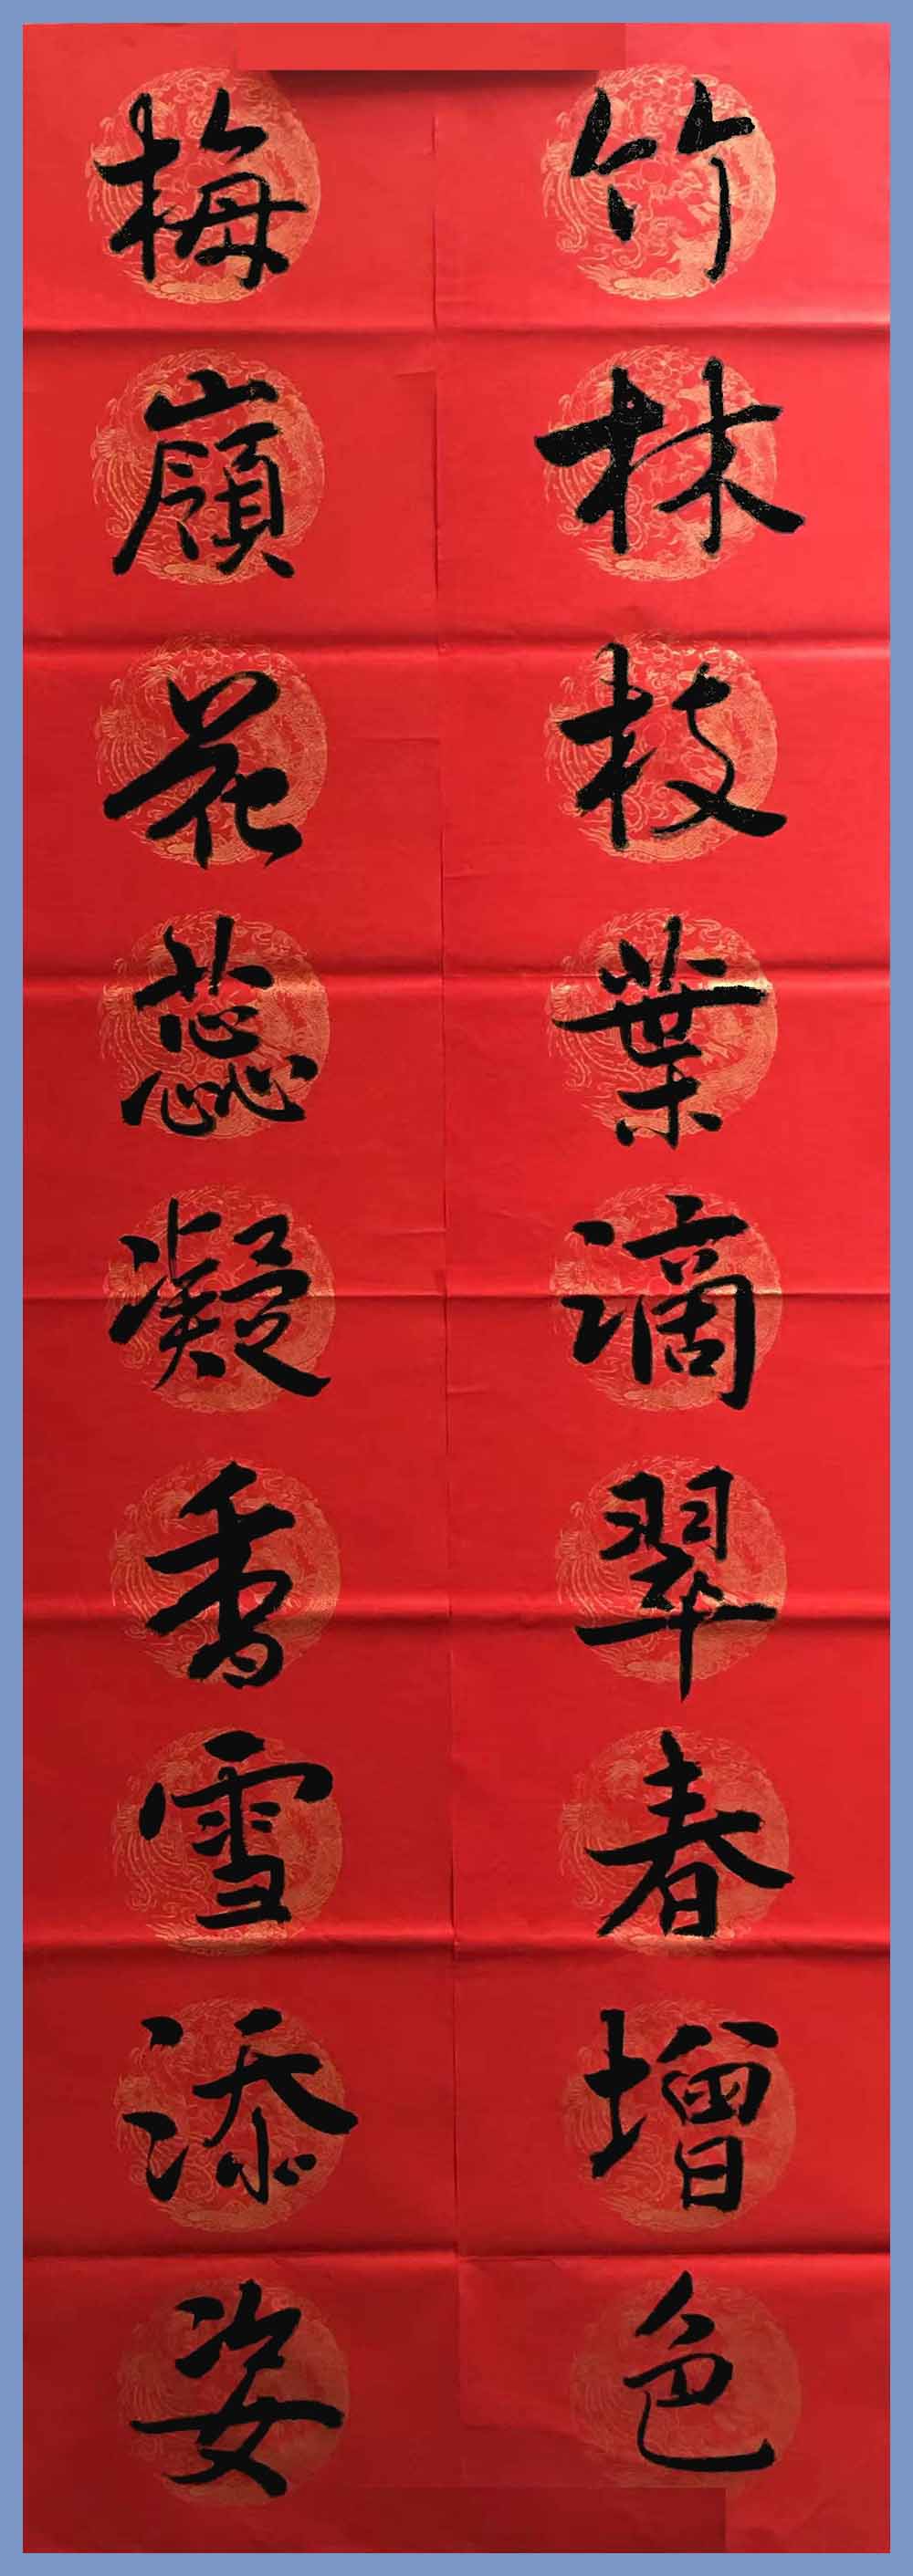 竹林枝葉滴翠春增色
梅嶺花蕊凝香雪添姿